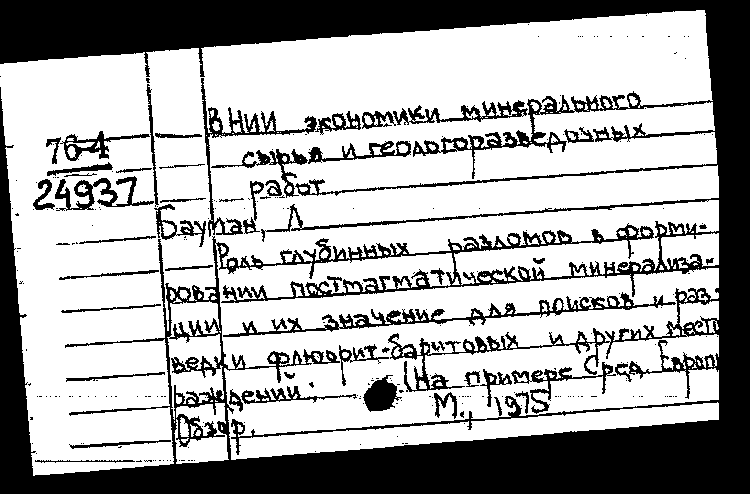 ВНИИ экономики минерального
76-4
сырья и геологоразведочных
24937
работ.
Бауман, Л
Роль глубинных разломов в форми-
ровании постмагматической минерализа-
ции и их значение для поисков и раз-
ведки флюорит-баритовых и других место
рождений; (На примере Сред. Европы
М., 1975
Обзор.